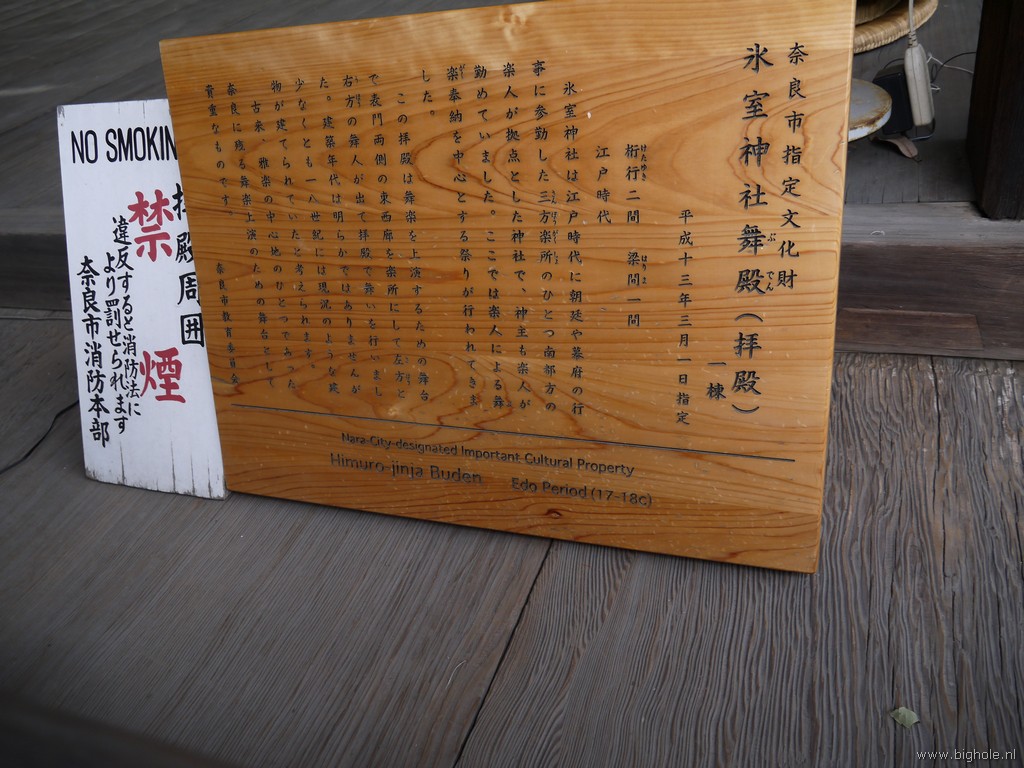 奈良市指定文化財
氷室神社舞殿(拝殿) 一棟
ぶでん
平成十三年三月一日指定
桁行二間 梁間一間
けたゆき はりま
江戸時代
氷室神社は江戸時代に朝廷や幕府の行
事に参勤した三方楽所のひとつ南都方の
楽人が拠点とした神社で、神主も楽人が
勤めていました。ここでは楽人による舞
楽奉納を中心とする祭りが行われてきま
した。
この拝殿は舞楽を上演するための舞台
で表門両側の東西廊を楽所にして左方と
右方の舞人が出て拝殿で舞いを行いまし
た。建築年代は明らかではありませんが
少なくとも一八世紀には現況のような建
物が建てられていたと考えられます。
古来、雅楽の中心地のひとつであった
奈良に残る舞楽上演のための舞台として
貴重なものです。 奈良市教育委員会
Nara-City-designated Important Cultural Property
Himuro-jinja Buden Edo Period (17-18c)
NO SMOKIN
拝殿周囲
禁煙
違反すると消防法に
より罰せられます
奈良市消防本部
www.bighole.nl